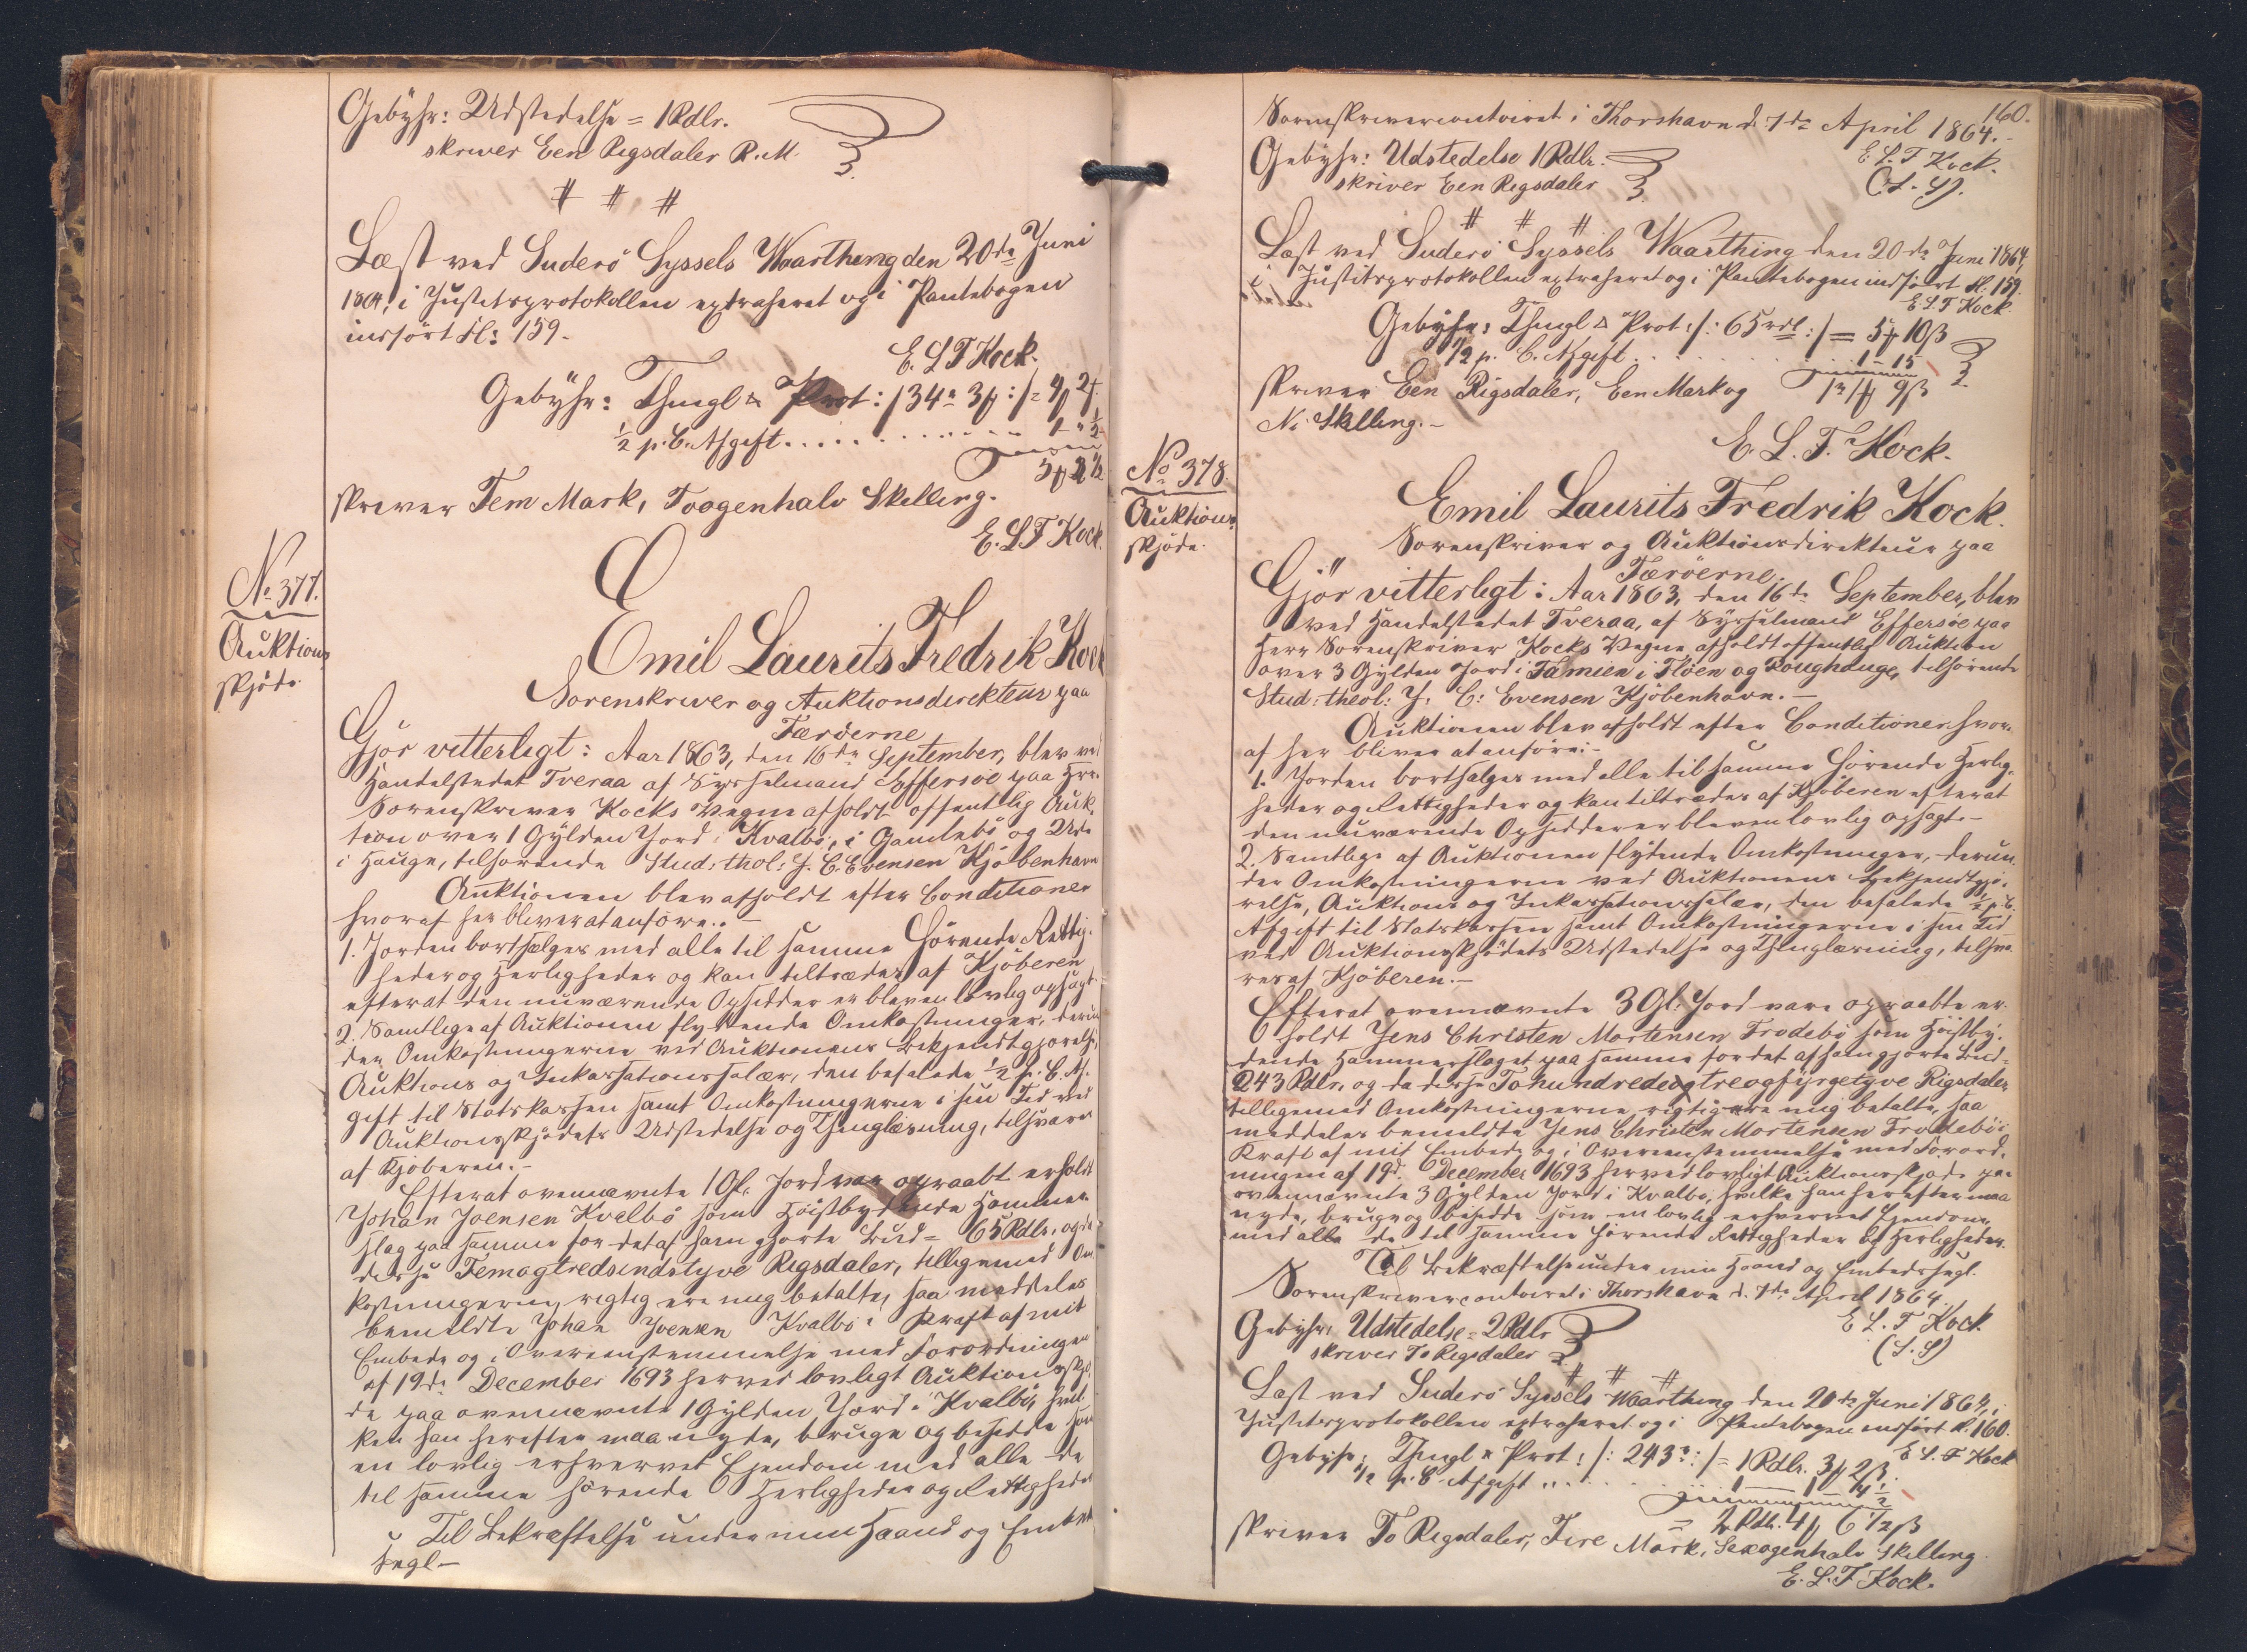 Gebÿhr: Udstedelse = 1 Rdlr.
skriver Een Rigsdaler R.M.
# # #
Læst ved Suderö Syssels Waarthing den 20de Juni
1864, i Justitsprotokollen extraheret og i Pantebogen
indfört Fl: 159.
E. L F Kock.
Gebÿhr: Thingl & Prot: /34
½ p. C. Afgift
skriver Fem Mark, Toogenhalv Skilling.
E. L F Kock.
No. 377.
Auktions
skjöde.
Emil Laurits Fredrik Kock
Sorenskriver og Auktionsdirekteur paa
Færöerne
Gjör vitterligt: Aar 1863, den 16de September, blev ved
Handelstedet Tveraa af Sysselmand Effersøe paa Hrr.
Sorenskriver Kocks Vegne afholdt offentlig Auk-
tion over 1 Gylden Jord i Kvalbö, i Gamlebö og Ude
i Hauge, tilhörende Stud: thol: J. C. Evensen Kjöbenhavn
Auktionen blev afholdt efter Conditioner
hvoraf her bliver at anföre:.
1. Jorden bortsælges med alle til samme hörende Rettig-
heder og Herligheder og kan tiltrædes af Kjöberen
efterat den nuværende Opsidder er bleven lovlig opsagt.
2. Samtlige af Auktionen flydende Omkostninger, derun
der Omkostningerne ved Auktionens Bekjendtgjörelse,
Auktions og Inkassationssalær, den befalede ½ p. C. Af-
gift til Statskassen samt Omkostningerne i sin Tid ved
Auktionsskjödets Udstedelse og Thinglæsning, tilsvares
af Kjöberen.-
Efterat ovennævnte 1 Gl. Jord var opraabt erholdt
Johan Joensen Kvalbö som Höistbydende Hammer
slag paa samme for det af ham gjorte Bud = 65 Rdlr, og da
disse Femogtredsindstyve Rigsdaler, tilligemed Om
kostningerne, rigtig ere mig betalte, saa meddeles
bemeldte Johan Joensen Kvalbö i Kraft af mit
Embede og i Overeensstemmelse med Forordningen
af 19de December 1693 herved lovligt Auktionsskjö
de paa ovennævnte 1 Gylden Jord i Kvalbö, hvil
ken han herefter maa nyde, bruge og besidde som
en lovlig erhvervet Ejendom med alle de
til samme hörende Herligheder og Rettigheder
Til Bekræftelse under min Haand og Embeds
segl-
160.
Sorenskrivercontoiret i Thorshavn d. 7de April 1864.-
E. L. F Kock.
(L. S).
Gebÿhr: Udstedelse 1 Rdlr.
skriver Een Rigsdaler
# # #
Læst ved Suderö Syssels Waarthing den 20de Juni 1864,
i Justitsprotokollen extraheret og i Pantebogen indfört Fl. 159.
E. L F Kock.
Gebÿhr: Thingl & Prot: /: 65 rdl :/ =
½ p. C. Afgift
skriver Een Rigsdaler, Een Mark og
Ni Skilling.-
E. L. F. Kock.
No 378.
Auktions
skjöde.
Emil Laurits Fredrik Kock.
Sorenskriver og Auktionsdirekteur paa
Færöerne.
Gjör vitterligt: Aar 1863, den 16de September, blev
ved Handelstedet Tveraa, af Sysselmand Effersøe paa
Herr Sorenskriver Kocks Vegne afholdt offentlig Auktion
over 3 Gylden Jord i Famien i Flöen og Roughauge, tilhörende
Stud: theol: J. C: Evensen Kjöbenhavn.-
Auktionen blev afholdt efter Conditioner hvor-
af her bliver at anföre:-
1. Jorden bortsælges med alle til samme hörende Herlig-
heder og Rettigheder og kan tiltrædes af Kjöberen efterat
den nuværende Opsidder er bleven lovlig opsagt.-
2. Samtlige af Auktionen flydende Omkostninger, derun-
der Omkostningerne ved Auktionens Bekjendtgjö-
relse, Auktions og Inkassationssalær, den befalede ½ p. C.
Afgift til Statskassen samt Omkostningerne i sin Tid
ved Auktionsskjödets Udstedelse og Thinglæsning, tilsva-
res af Kjöberen.-
Efterat ovennævnte 3 Gl. Jord vare opraabte er-
holdt Jens Christen Mortensen Frodebö som Höistby-
dende Hammerslaget paa samme for det af ham gjorte Bud =
243 Rdlr, og da disse Tohundrede og treogfyrgetyve Rigsdaler
tilligemed Omkostningerne rigtig ere mig betalte, saa
meddeles bemeldte Jens Christen Mortensen Frodebö i
Kraft af mit Embede og i Overeensstemmelse med Forord-
ningen af 19d. December 1693 herved lovligt Auktionsskjöde paa
ovennævnte 3 Gylden Jord i Kvalbö, hvilke han herefter maa
nyde, bruge og besidde som en lovlig erhvervet Ejendom,
med alle de til samme hörende Rettigheder og Herligheder.
Til Bekræftelse under min Haand og Embedssegl.
Sorenskrivercontoiret i Thorshavn d. 7de April 1864.
E. L. F Kock.
(L. S)
Gebÿhr: Udstedelse = 2 Rdlr
skriver To Rigsdaler
# # #
Læst ved Suderö Syssels Waarthing den 20de Juni 1864, i
Justitsprotokollen extraheret og i Pantebogen indfört Fl. 160.
E. L. F Kock
Gebÿhr: Thingl & Prot: /: 243 :/ = 1 Rdlr. 3
½ p. C Afgift
= 2 Rdlr. 4 6½ ß
skriver To Rigsdaler, Fire Mark, Sexogenhalv Skilling.
E. L. F Kock.